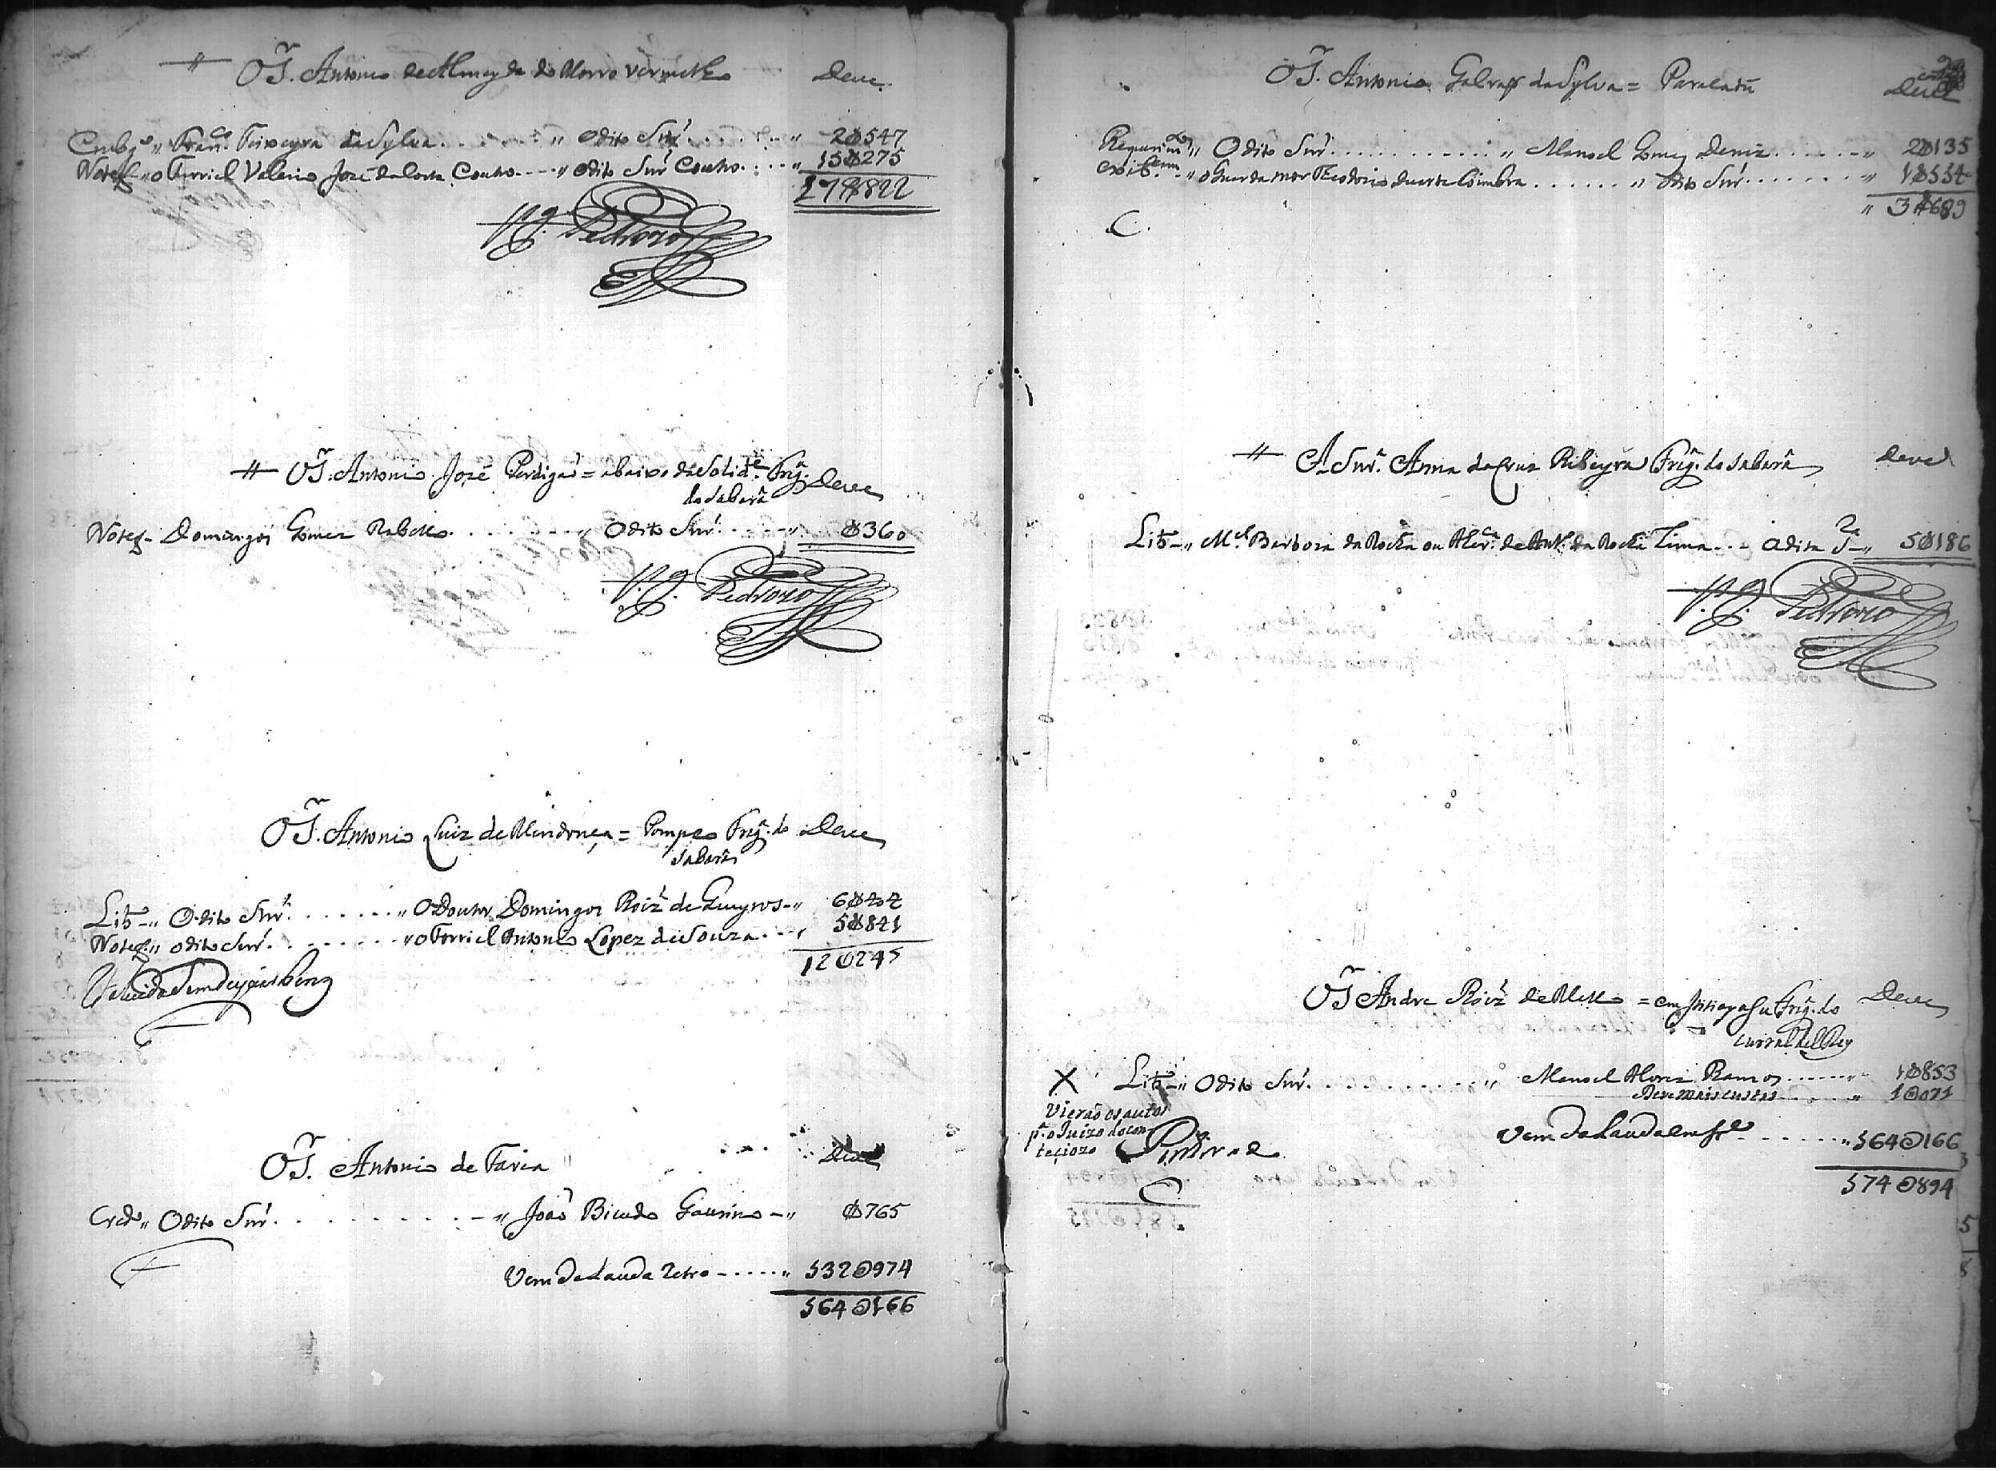 O Sr. Antonio de Almeyda do Morro Vermelho Deve
Embgo " Franco Teixeyra da Sylva " O dito Snr " 2$547
Notef " o Forriel Valerio José da Costa Couto " o dito Snr Couto " 15$275
17$822
P.G. Pedrozo
O Sr. Antonio José Perdigaõ = abaixo da Solide Frga. Deve
do Sabará
Notef - Domingos Gomez Rabello " O dito Snr " $360
P.G. Pedrozo
O Sr. Antonio Luiz de Mendonça = Pompeo Frga. do Deve
Sabará
Lib - " O dito Snr " O Doutor Domingos Roiz de " 6$404
Notef " o dito Snr " o Forriel Antonio Lopez de Souza " 5$841
12$245
O Sr. Antonio de Faria Deve
Cred " O dito Snr " João Bicudo " $765
Vem da Lauda retro " 532$974
564$166
O Sr. Antonio Galvaõ da Sylva = Deve
" O dito Snr " Manoel Gomez Deniz " 2$135
" o Guarda mor Theodozio Duarte Coimbra " o dito Snr " 1$554
" 3$689
C.
A Snra. Anna da Cruz Ribeyra Frga. do Sabará Deve
Lib - " Mel. Barboza da Rocha ou de Anto. da Rocha Lima - A dita Sra " 5$186
P.G. Pedrozo
O Sr Andre Roiz de Mello = em Frga. do Deve
Curral del Rey
X Lib - " O dito Snr " Manoel Ramos " 1$853
Deve mais custas " 1$071
Vieraõ os autos
pa. o Juizo do con
teciozo
Vem da Lauda " 564$166
574$894